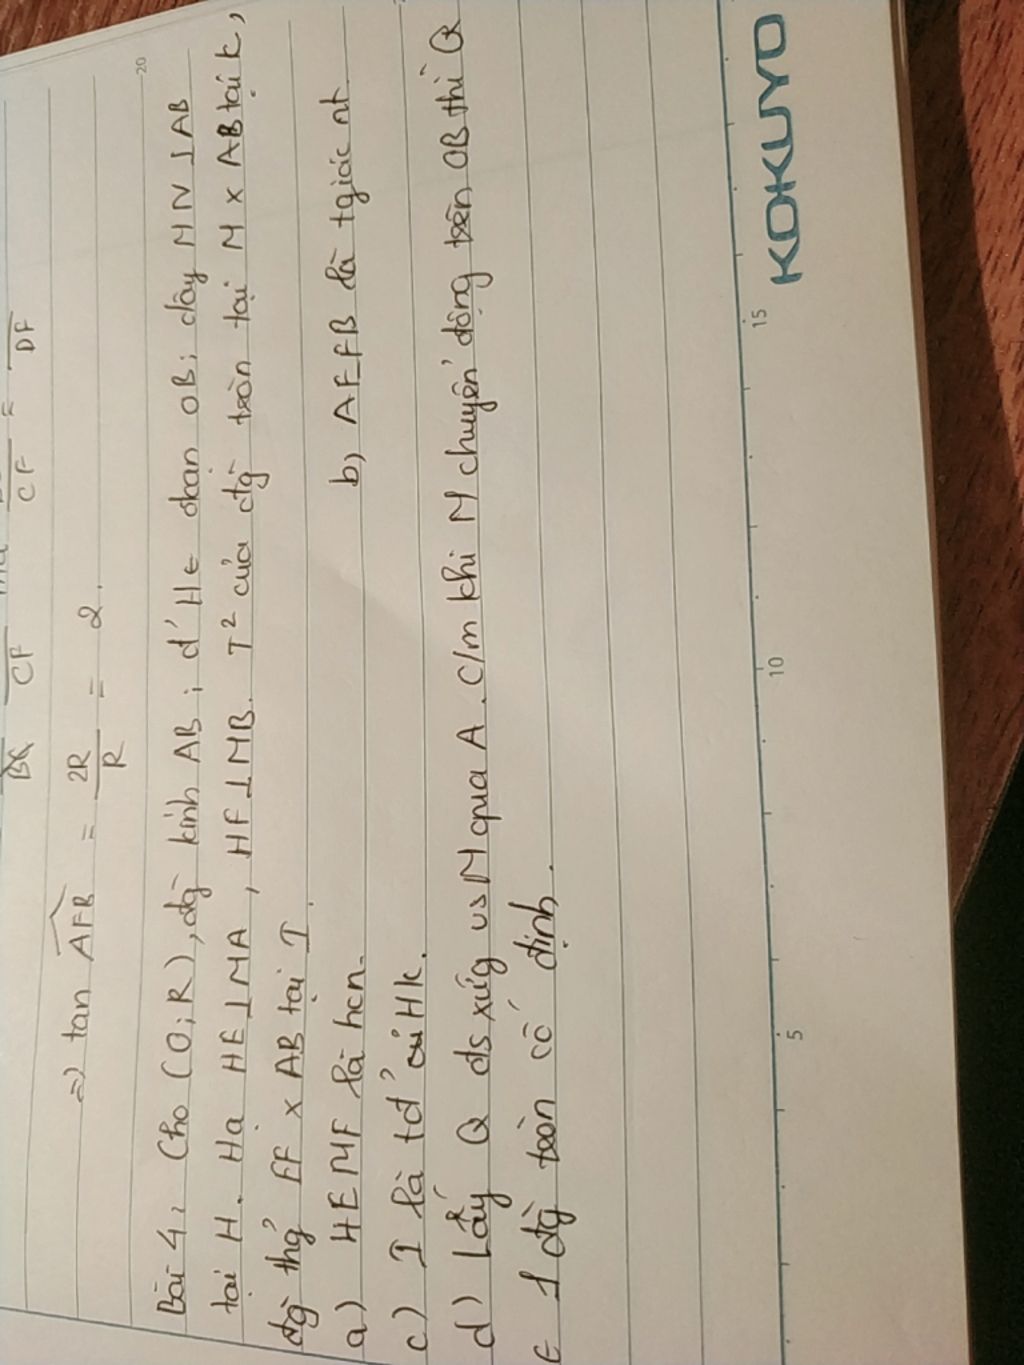 CF CF = DF
=) tan AFB = 2R/R = 2.
Bài 4: Cho (O;R), đg kính AB; đ' H ∈ đoạn OB; dây MN ⊥ AB
tại H. Hạ HE ⊥ MA, HF ⊥ MB. T² của đg tròn tại M x AB tại K,
đg thg EF x AB tại I.
a) HEMF là hcn. b) AEFB là tgiác nt.
c) I là tđ' củ HK.
d) Lấy Q đs xứg vs M qua A. C/m khi M chuyển động trên OB thì Q
∈ 1 đg tròn cố định.
20
15
10
5
KOKUYO